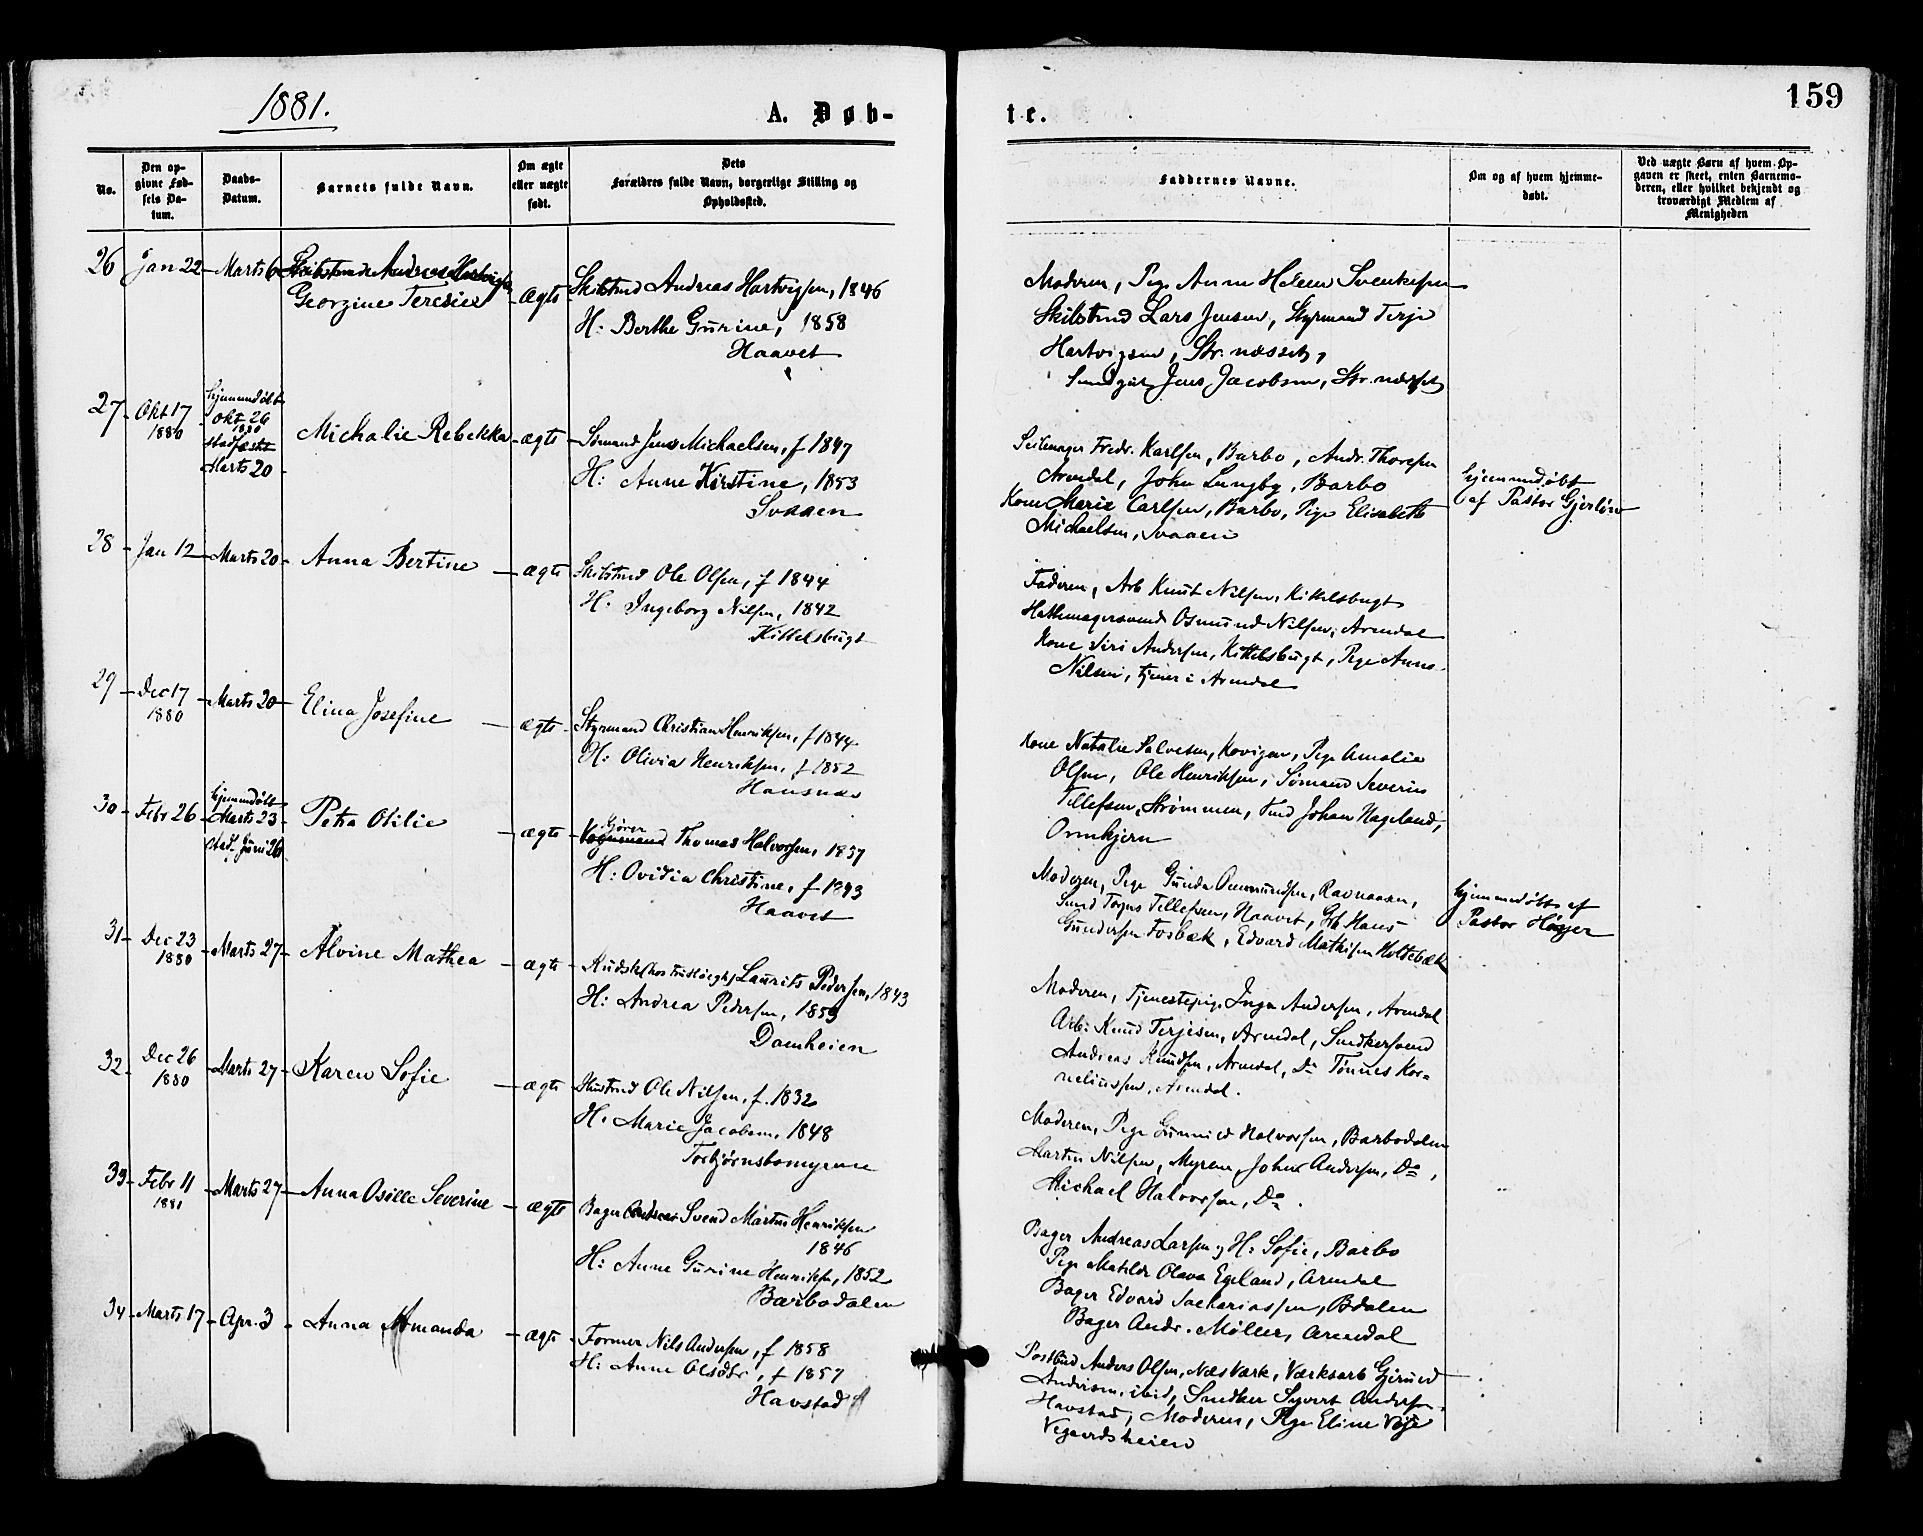 1881.
A. Døb-
te.
159
No.
Den op-
givne Fød-
sels Da-
tum.
Daabs-
Datum.
Barnets fulde Navn.
Om ægte
eller uægte
født.
Dets
Forældres fulde Navn, borgerlige Stilling og
Opholdssted.
Faddernes Navne.
Om og af hvem hjemme-
døbt.
Ved uægte Børn af hvem Op-
gaven er skeet, enten Barnemo-
deren, eller hvilket bekjendt og
troværdigt Medlem af
Menigheden
26 Jan 22 Marts 6
Georgine Teresie ægte
Skibstmd Andreas Hartvigsen, 1846
H: Berthe Gurine, 1858
Haavet
Moderen, Pige Anne Helene Svenkesen
Skibstmd Lars Jensen, Styrmand Terje
Hartvigsen, Str. næsset,
Jens Jacobsen, Str. næsset
27 Okt 17
1880
hjemmedøbt
Okt 26
1880
stadfæstet
Marts 20
Michalie Rebekka ægte
Sømand Jens Michaelsen, f 1847
H: Anne Kirstine, 1853
Svaaen
Seilmager Fredr. Karlsen, Barbo, Andr. Thorsen
Arendal, John Lungby, Barbo
Kone Marie Carlsen, Barbo, Pige Elisabeth
Michaelsen, Svaaen
hjemmedøbt
af Pastor Gjerløw
28 Jan 12 Marts 20 Anna Bertine ægte
Skibstmd Ole Olsen, f 1844
H: Ingeborg Nilsen, 1842
Kittelsbugt
Faderen, Arb Knut Nilsen, Kittelsbugt
Hattemagersvend Osmund Nilsen, Arendal
Kone Siri Andersen, Kittelsbugt, Pige Anne
Nilsen, tjener i Arendal
29 Dec 17
1880
Marts 20 Elina Josefine ægte
Styrmand Christian Henriksen, f 1844
H: Olivia Henriksen, f 1852
Hausnæs
Kone Natalie Salvesen, Kovigen, Pige Amalie
Olsen, Ole Henriksen, Sømand Severin
Tellefsen, Strømmen, Tmd Johan Hageland,
Ormkjern
30 Febr 26
hjemmedøbt
Marts 23
stad. Juni 26
Petra Otilie ægte
Kjører
Thomas Halvorsen, 1857
H: Ovidia Christine, f
Haavet
Moderen, Pige Gunda Aamundsen, Ravnaasen,
Smed Torjus Tellefsen, Haavet, Gb Hans
Gundersen Fosbæk, Edvard Mathisen Holtebæk
hjemmedøbt af
Pastor Høyer
31 Dec 23
1880
Marts 27 Alvine Mathea ægte
Kudsk Laurits Pedersen, 1843
H: Andrea Pedersen, 1853
Damheien
Moderen, Tjenestepige Inga Andersen, Arendal
Arb: Knud Terjesen, Arendal, Snedkersvend
Andreas Knudsen, Arendal, Do Tønnes Kor-
neliussen, Arendal.
32 Dec 26
1880
Marts 27 Karen Sofie ægte
Hustmd Ole Nilsen, f. 1832
H. Marie Jacobsen, 1848
Torbjørnsbomyrene
Moderen, Pige Gunnild Halvorsen, Barbodalen
Martin Nilsen, Myrene, Johan Andersen, Do,
Michael Halvorsen, Do.
33 Febr 11
1881
Marts 27 Anna Osille Severine ægte
Bager Svend Martin Henriksen
1846
H: Anne Gurine Henriksen, 1852
Barbodalen
Bager Andreas Larsen og H: Sofie, Barbo
Pige Matilde Olava Egeland, Arendal
Bager Edvard Sachariassen, Bdalen
Bager Andr. Møller, Arendal
34 Marts 17 Apr. 3 Anna Amanda ægte
Former Nils Andersen, f 1858
H: Anne Olsdtr, f 1857
Havstad
Postbud Anders Olsen, Næs Værk, Værksarb Gjeruld
Andersen, ibid, Snedker Syvert Andersen.
Havstad, Moderen, Pige Eline Veje
Vegaardsheien